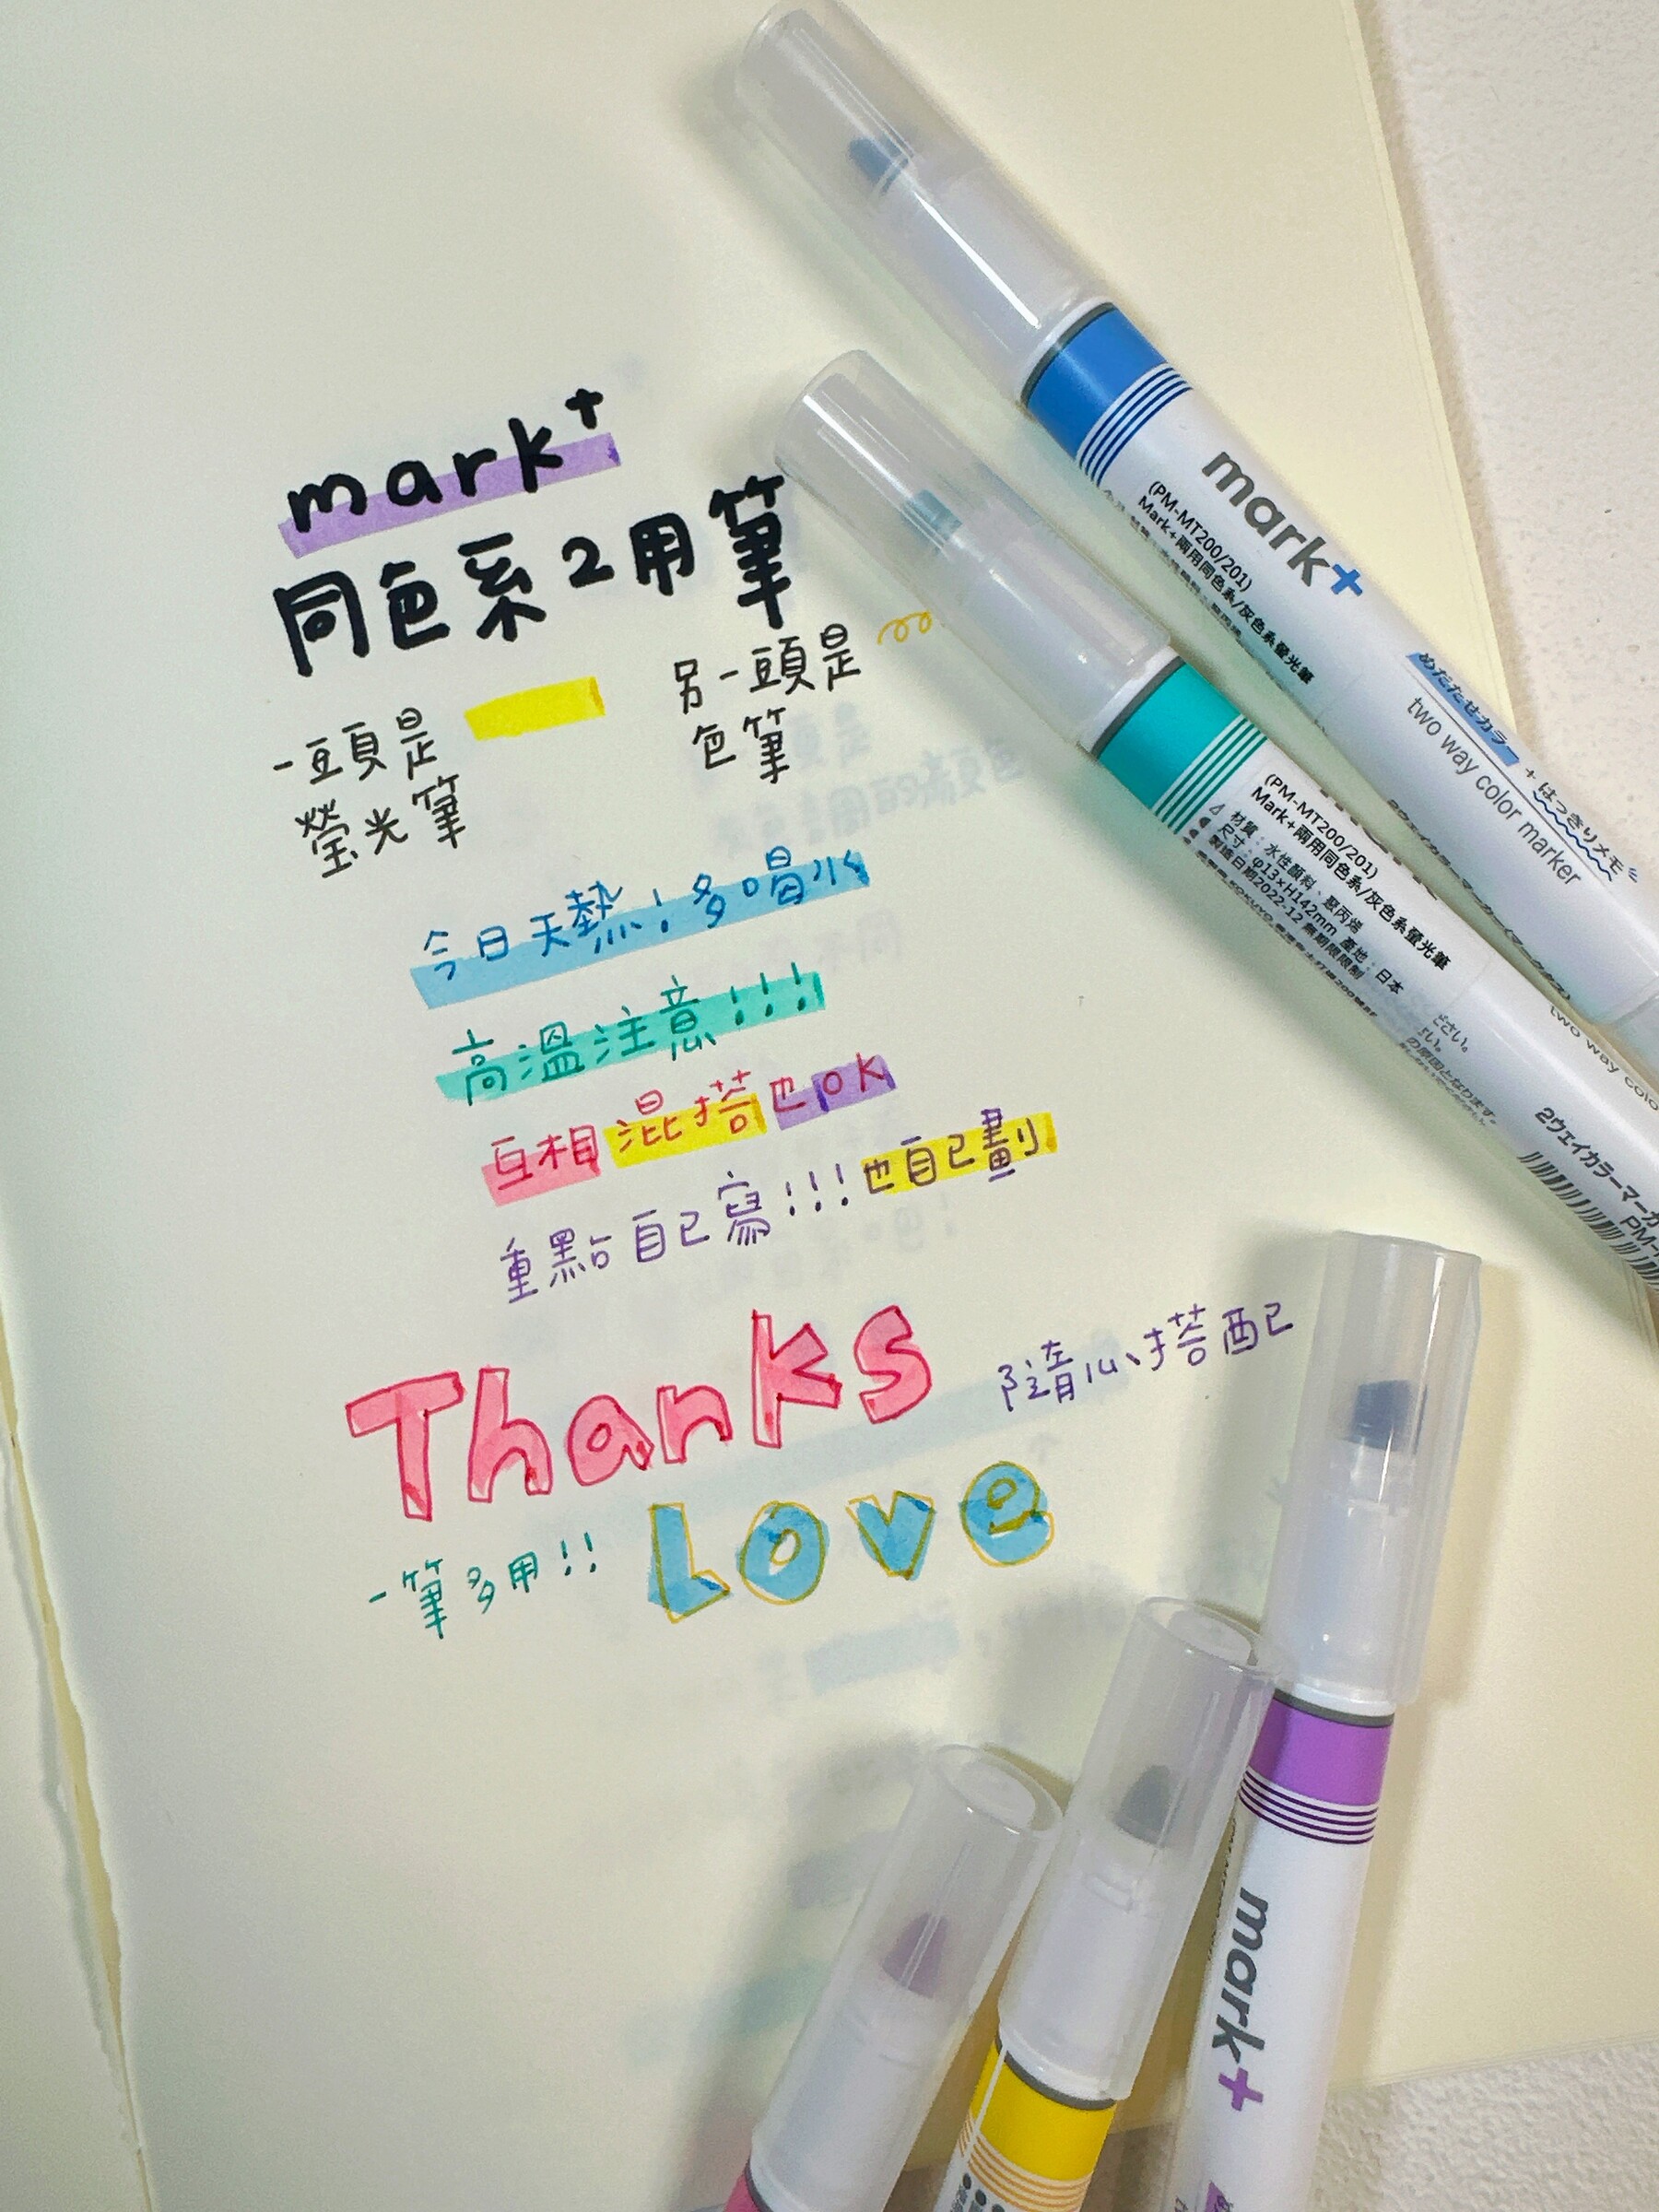 mark+
同色系2用筆
一頭是
螢光筆
另一頭是
色筆
今日天熱！多喝水
高溫注意!!!
互相混搭也OK
重點自己寫!!!也自己劃
Thanks
隨心搭配
一筆多用!!
Love
mark+
(PM-MT200/201)
Mark+兩用同色系/灰色系螢光筆
めだたせカラー + はっきりメモ
two way color marker
(PM-MT200/201)
Mark+兩用同色系/灰色系螢光筆
材質：水性顏料、聚丙烯
尺寸：φ13×H142mm 產地：日本
製造日期2022.12 無期限限制
two way colo
2ウェイカラーマーカ
PM-
mark+